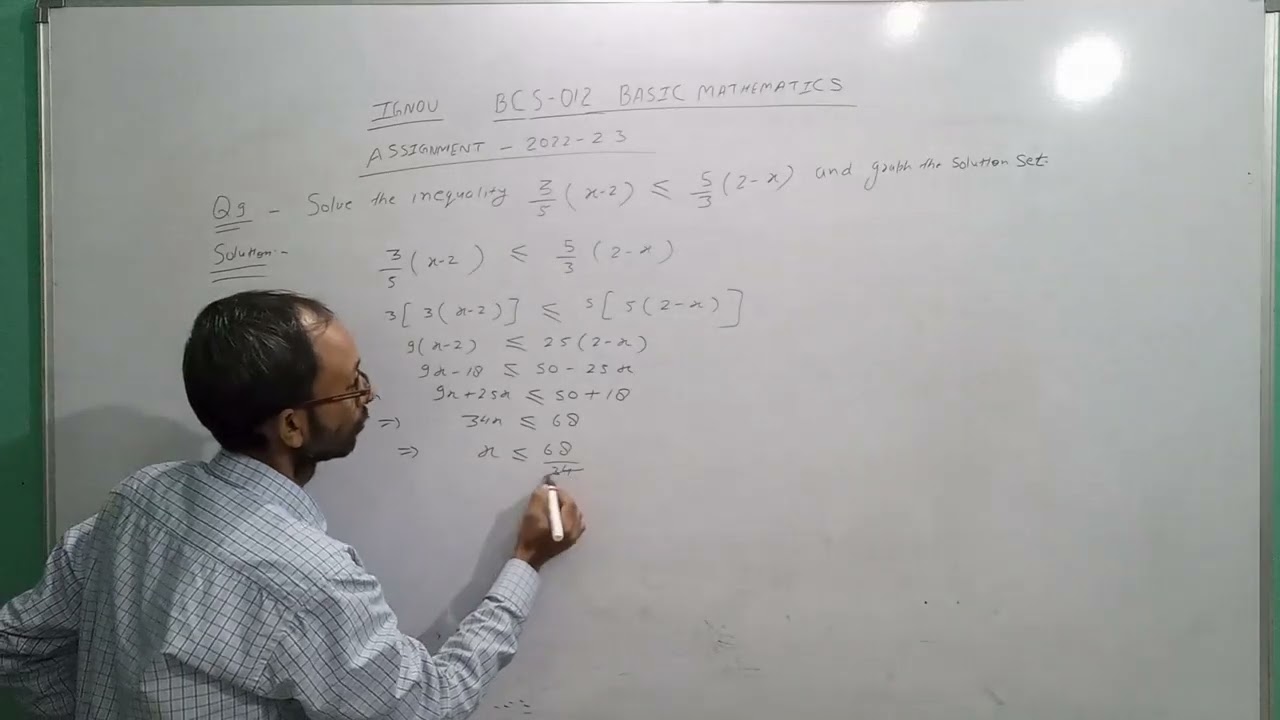 IGNOU BCS-012 BASIC MATHEMATICS
ASSIGNMENT - 2022-23
Q9 - Solve the inequality 3/5 (x-2) ≤ 5/3 (2-x) and graph the solution set
Solution:-
3/5 (x-2) ≤ 5/3 (2-x)
3[3(x-2)] ≤ 5[5(2-x)]
9(x-2) ≤ 25(2-x)
9x-18 ≤ 50-25x
9x+25x ≤ 50+18
=> 34x ≤ 68
=> x ≤ 68/34